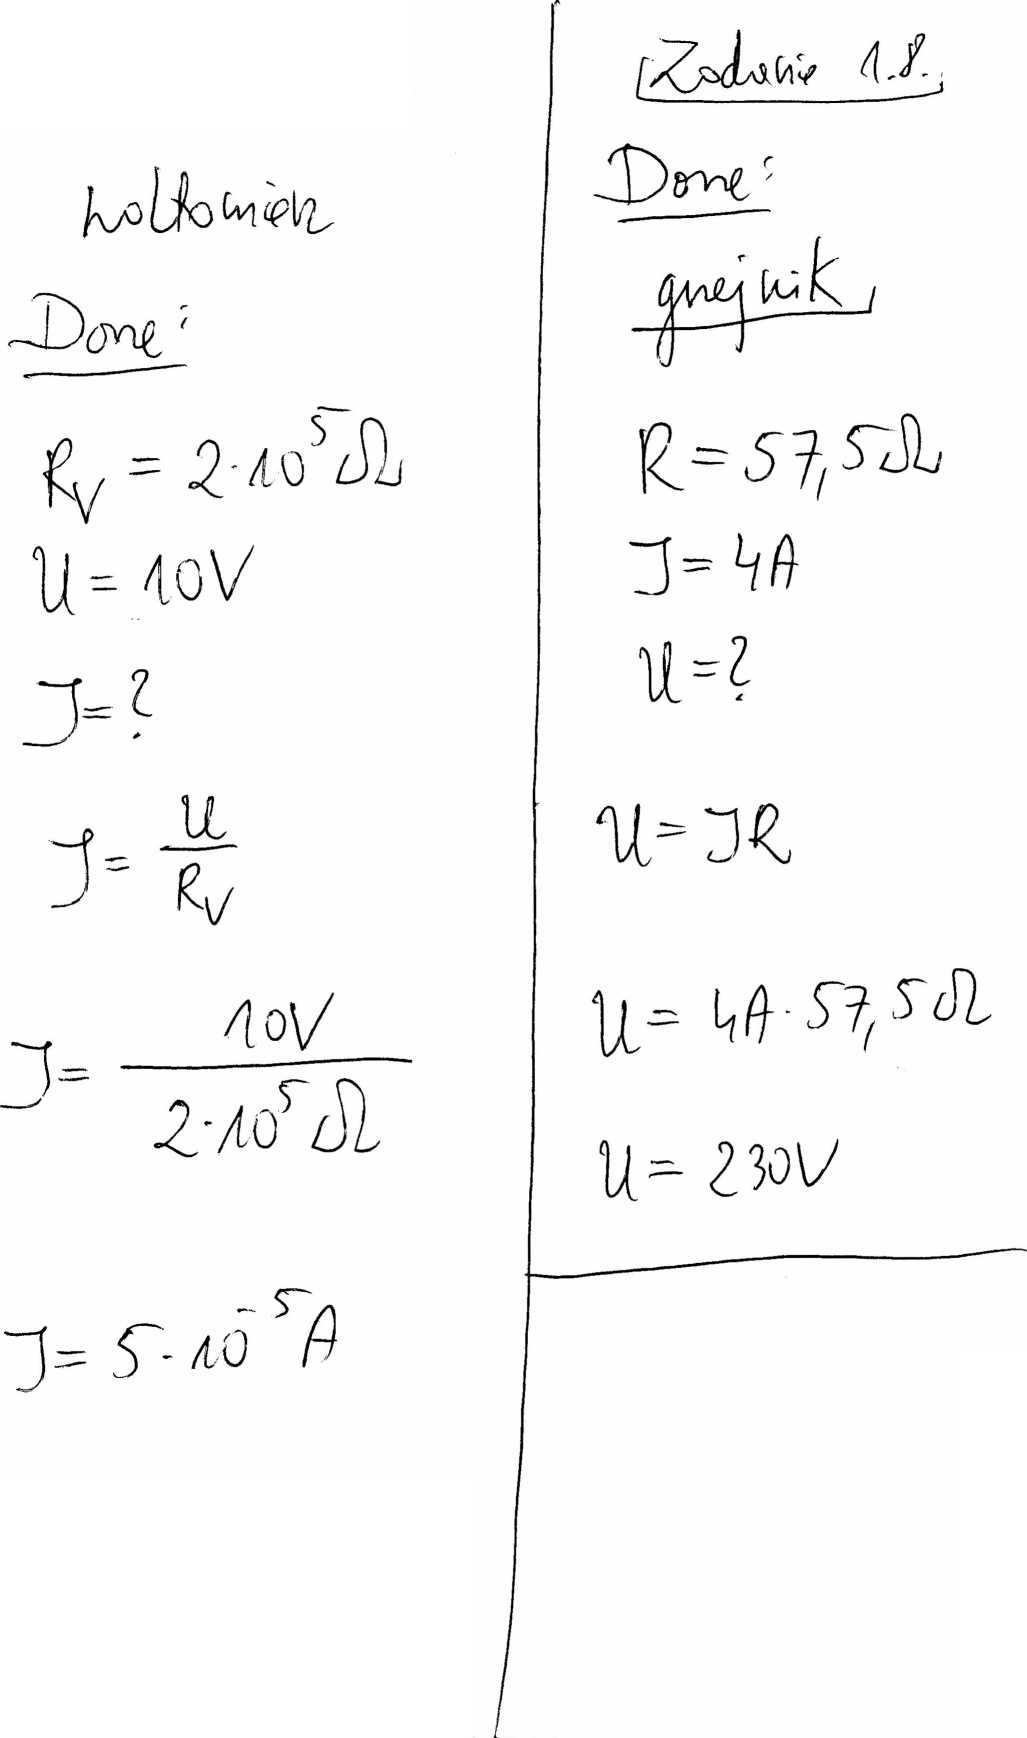 woltomierz
Dane:
R_V = 2·10^5 Ω
U = 10V
I = ?
I = U/R_V
I = 10V / 2·10^5 Ω
I = 5·10^-5 A
Zadanie 1.8.
Dane:
grzejnik
R = 57,5Ω
I = 4A
U = ?
U = IR
U = 4A · 57,5Ω
U = 230V